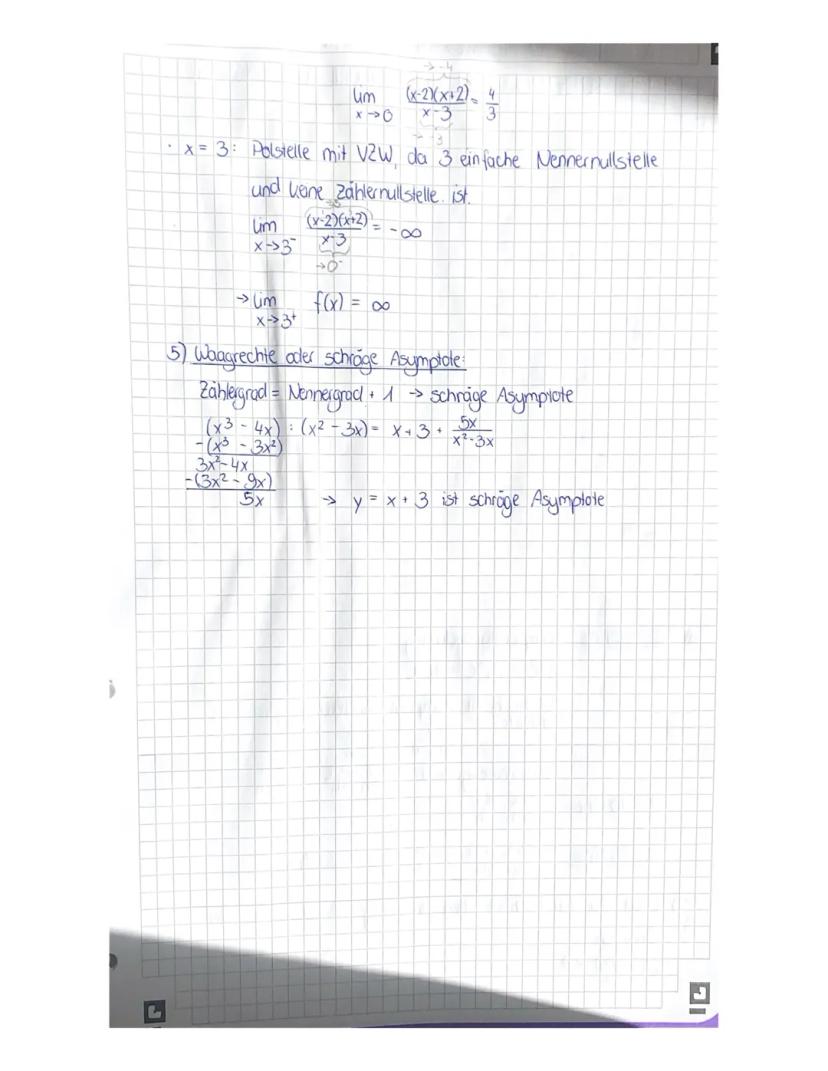 → -4
lim (x-2)(x+2) = 4
x→0 x-3 3
→ -3
· x = 3: Polstelle mit VZW, da 3 einfache Nennernullstelle
und keine Zählernullstelle ist.
→5
lim (x-2)(x+2) = -∞
x→3⁻ x-3
→0⁻
→ lim f(x) = ∞
x→3⁺
5) Waagrechte oder schräge Asymptote:
Zählergrad = Nennergrad + 1 → schräge Asymptote
(x³ - 4x) : (x² - 3x) = x + 3 + 5x
x²-3x
-(x³ - 3x²)
3x² - 4x
-(3x² - 9x)
5x → y = x + 3 ist schräge Asymptote